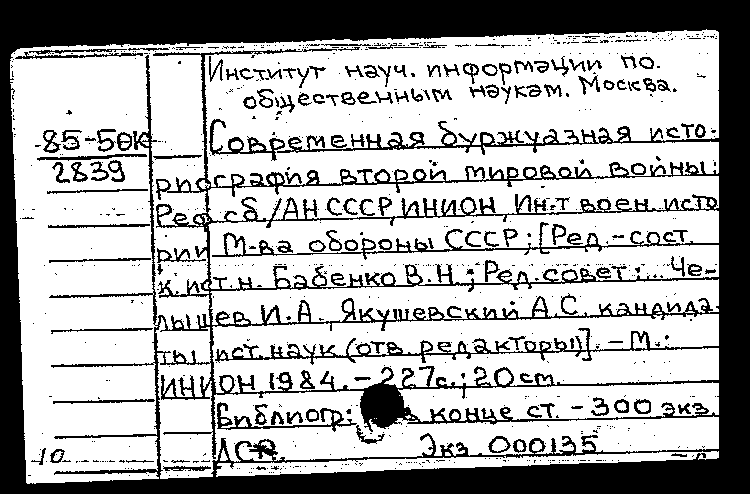 Институт науч. информации по
общественным наукам. Москва.
85-5
2839
Современная буржуазная исто-
риография второй мировой войны:
Реф. сб./АН СССР, ИНИОН, Ин-т воен. исто
рии М-ва обороны СССР; [Ред.-сост.
к. ист. н. Бабенко В.Н.; Ред. совет: ... Че-
лышев И.А., Якушевский А.С. кандида-
ты ист. наук (отв. редакторы)]. - М.:
ИНИОН, 1984. - 227с.; 20 cm.
Библиогр: в конце ст. - 300 экз.
Экз. 000135
10